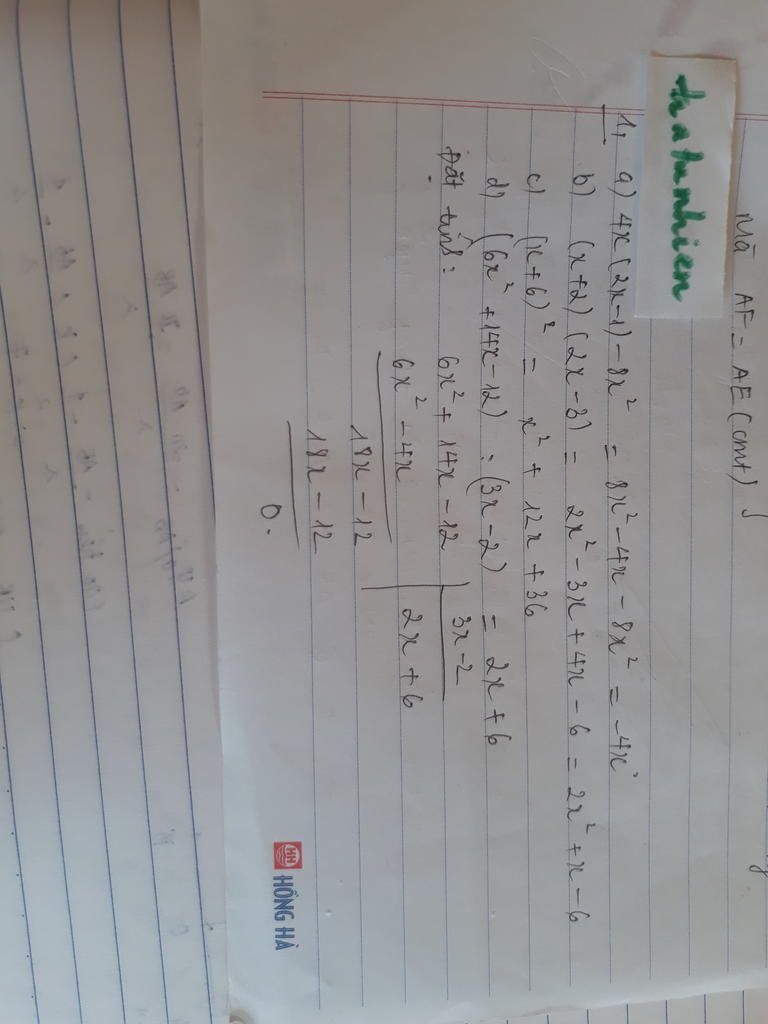 Mà AF = AE (cmt)
hatunhien
1, a) 4x(2x-1) - 8x² = 8x² - 4x - 8x² = -4x
b) (x+2)(2x-3) = 2x² - 3x + 4x - 6 = 2x² + x - 6
c) (x+6)² = x² + 12x + 36
d) (6x² + 14x - 12) : (3x - 2) = 2x + 6
Đặt tính: 6x² + 14x - 12 | 3x - 2
6x² - 4x | 2x + 6
18x - 12
18x - 12
0.
HH HỒNG HÀ